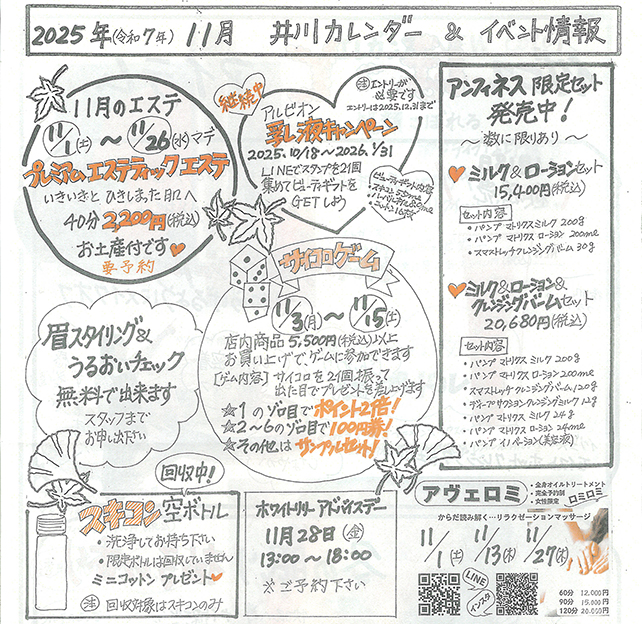 2025年(令和7年) 11月 井川カレンダー & イベント情報
11月のエステ
11/1(土)～11/26(水)マデ
プレミアムエステティックエステ
いきいきと ひきしまった肌へ
40分 2,200円(税込)
お土産付です
要予約
継続中
注 エントリーが
必要です
エントリーは2025.12.31まで
アルビオン
乳液キャンペーン
2025.10/18～2026.1/31
LINEでスタンプを2個
集めてビューティギフトを
GETしよう
アンフィネス 限定セット
発売中!
～数に限りあり～
ミルク&ローションセット
15,400円(税込)
セット内容
・パンプ マトリクス ミルク 200g
・パンプ マトリクス ローション 200ml
・スマストレッチクレンジングバーム 30g
ミルク&ローション&
クレンジングバームセット
20,680円(税込)
セット内容
・パンプ マトリクス ミルク 200g
・パンプ マトリクス ローション 200ml
・スマストレッチ クレンジングバーム 120g
・パンプ マトリクス ミルク 24g
・パンプ マトリクス ローション 24ml
サイコロゲーム
11/3(月)～11/15(土)
店内商品 5,500円(税込)以上
お買い上げで、ゲームに参加できます
[ゲーム内容] サイコロを2個振って
出た目でプレゼントを差し上げます
☆1のゾロ目でポイント2倍!
☆2～6のゾロ目で100円券!
☆その他は サンプルセット!
眉スタイリング&
うるおいチェック
無料で出来ます
スタッフまで
お申し出下さい
回収中!
スキコン 空ボトル
・洗浄してお持ち下さい
・限定ボトルは回収していません
ミニコットン プレゼント
注 回収対象はスキコンのみ
ホワイトリリー アドバイスデー
11月28日(金)
13:00～18:00
※ご予約下さい
アヴェロミ
・全身オイルトリートメント
・完全予約制
・女性限定
ロミロミ
からだ読み解く…リラクゼーションマッサージ
11/1(土) 11/13(木) 11/27(木)
LINE
インスタ
60分 12,000円
90分 15,000円
120分 20,000円